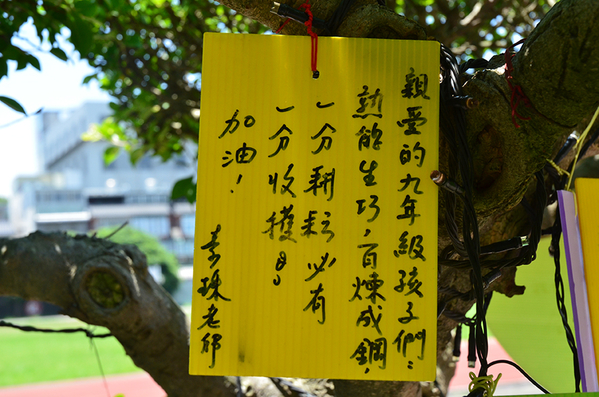 親愛的九年級孩子們：
熟能生巧，百煉成鋼，
一分耕耘必有
一分收獲。
加油！
素珠老師